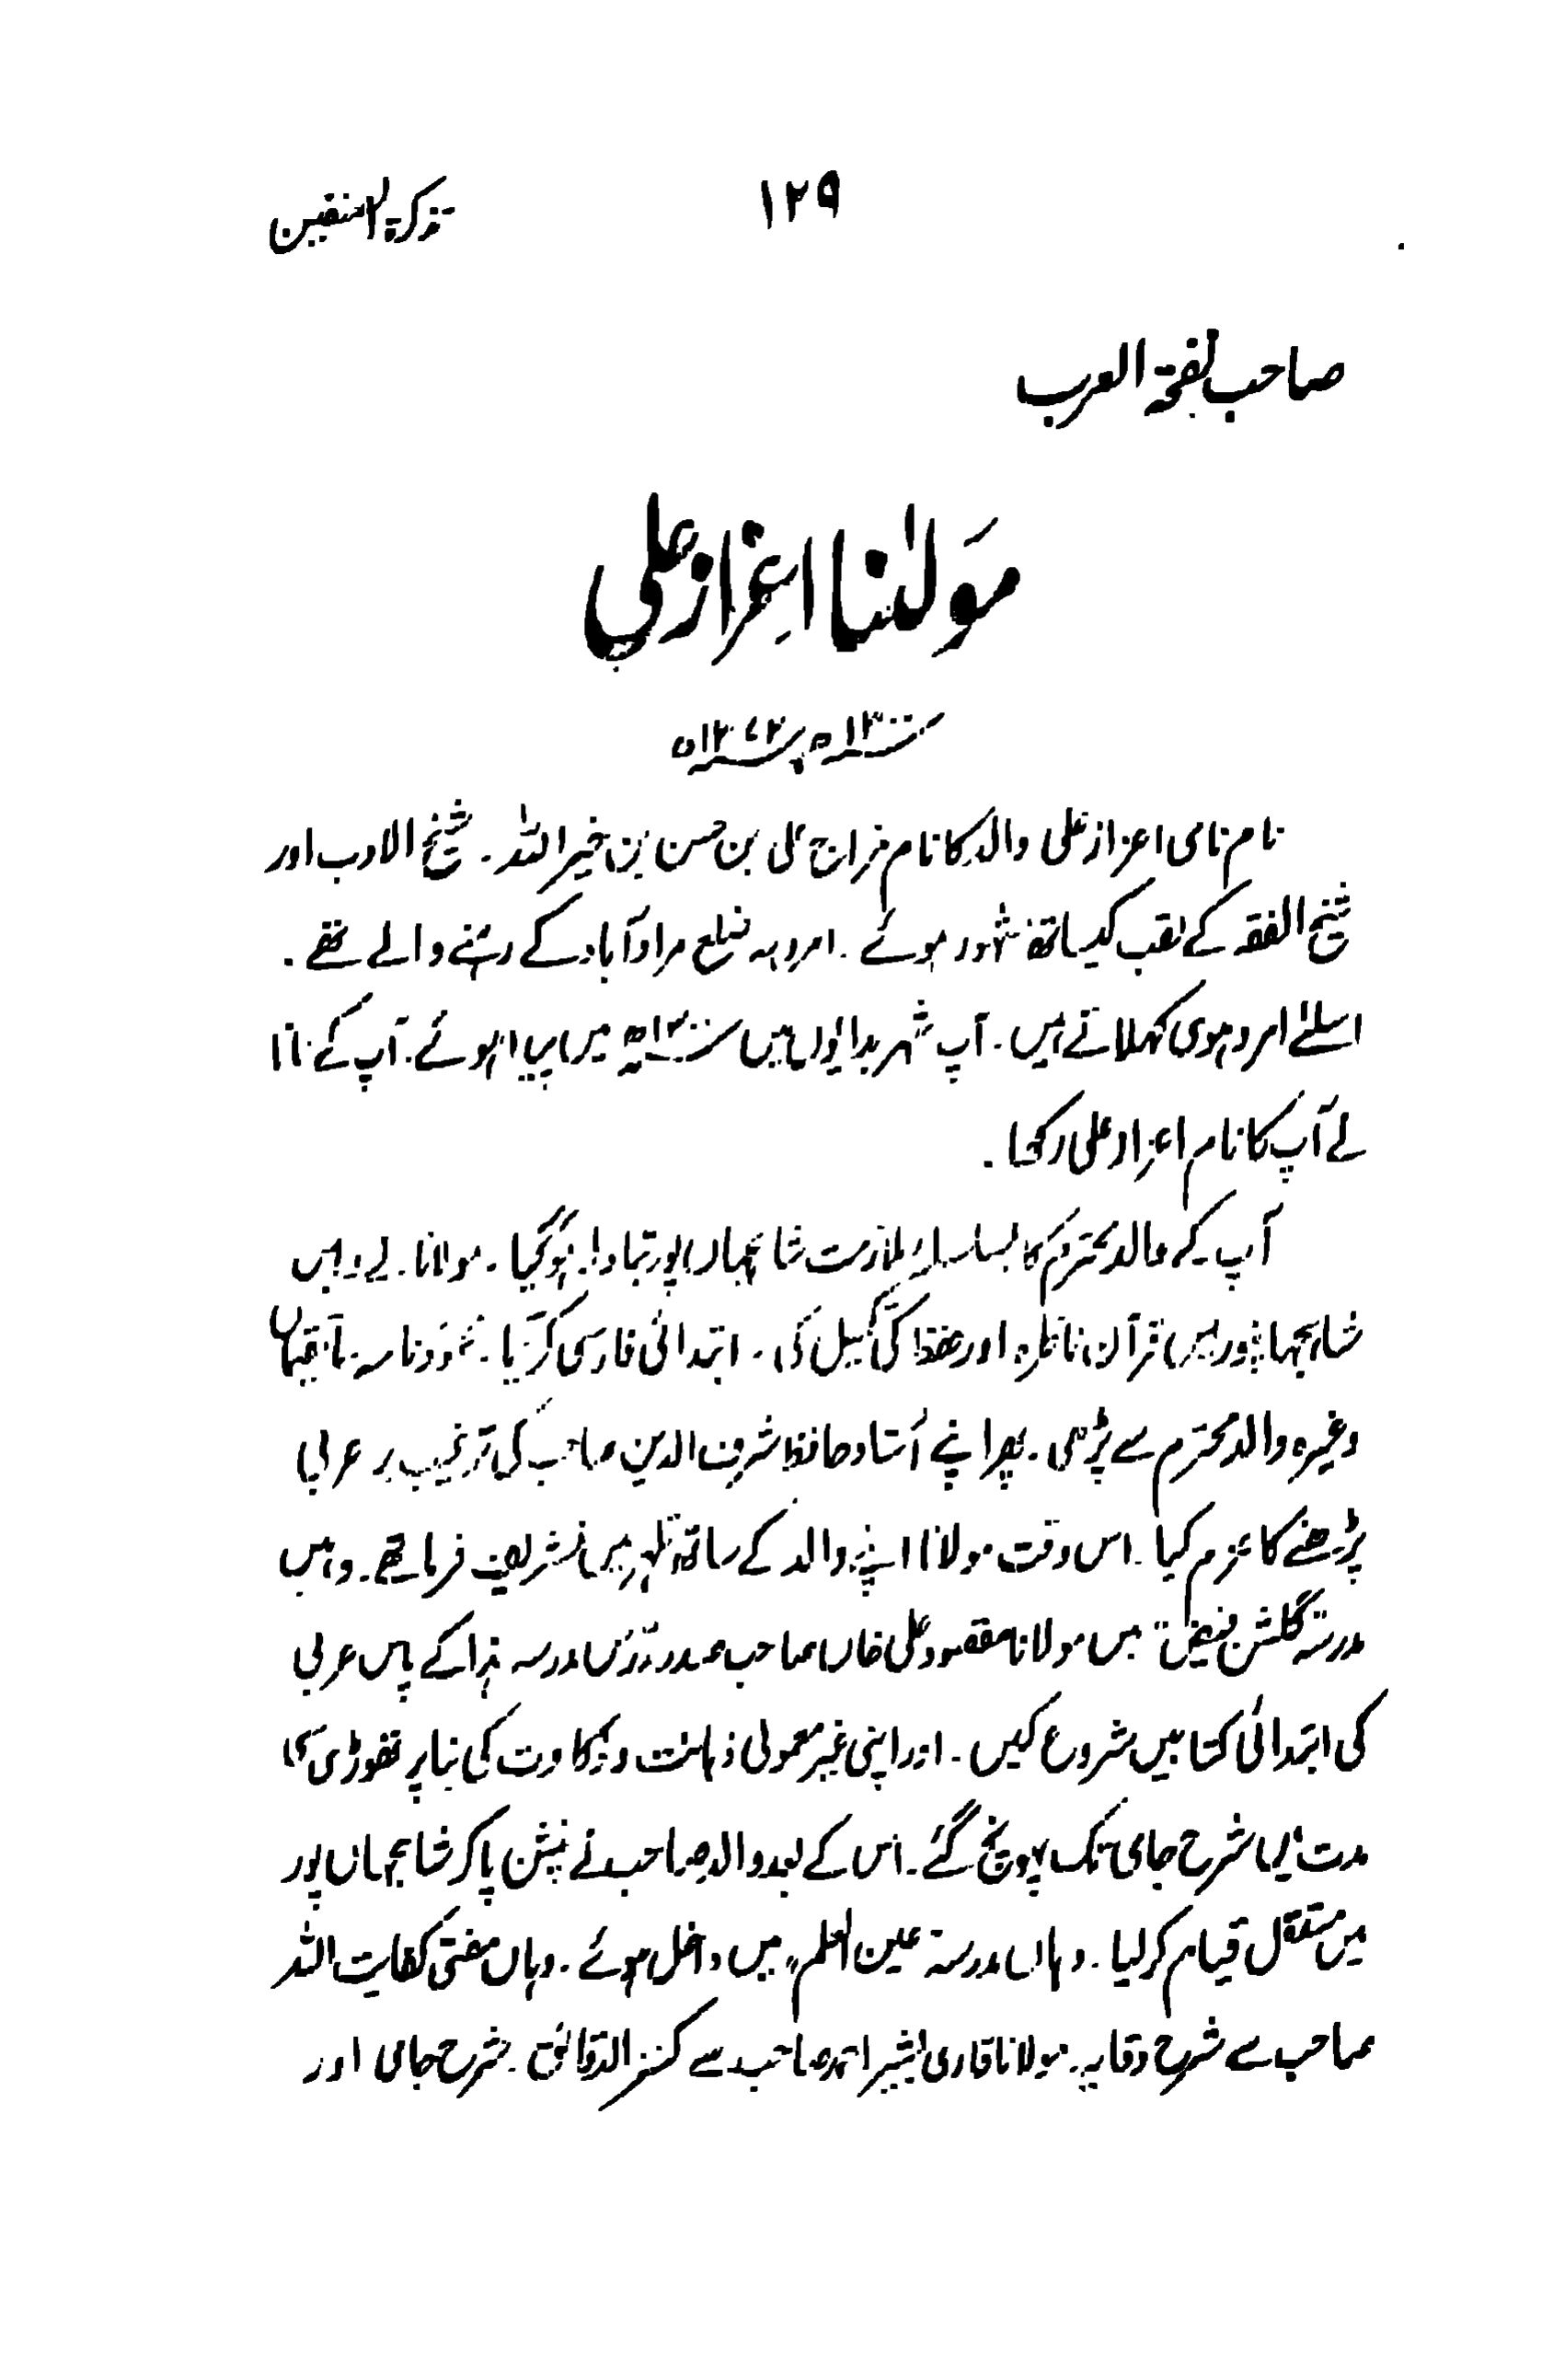 تذکرۃ المصنفین
۱۲۹
صاحب نفحۃ العرب
مَولٰنا اعِزاز علی
سنہ ۱۳۰۰ھ سنہ ۱۳۷۲ھ
نام نامی اعزاز علی والد کا نام مزاج علی بن حسن بن خیر اللہ ۔ شیخ الادب اور
شیخ الفقہ کے لقب کیساتھ مشہور ہوئے ۔ امروہہ ضلع مرادآباد کے رہنے والے تھے ۔
اسلئے امروہوی کہلاتے ہیں ۔ آپ شہر بدایوں میں سنہ ۱۳۰۰ھ میں پیدا ہوئے ۔ آپ کے نانا
نے آپ کا نام اعزاز علی رکھا ۔
آپ کے والد محترم کا بسلسلہ ملازمت شاہجہاں پور تبادلہ ہوگیا ۔ مولانا نے وہیں
شاہجہانپور میں قرآن ناظرہ اور حفظ کی تکمیل کی ۔ ابتدائی فارسی
وغیرہ والد محترم سے پڑھی ۔ پھر اپنے اُستاد حافظ شرف الدین صاحب کی ترغیب پر عربی
پڑھنے کا عزم کیا ۔ اس وقت مولانا اپنے والد کے ساتھ تلہر میں تشریف فرما تھے ۔ وہیں
مدرسہ گلشن فیض" میں مولانا مقصود علی خاں صاحب صدر مدرس مدرسہ ہذا کے پاس عربی
کی ابتدائی کتابیں شروع کیں ۔ اور اپنی غیر معمولی ذہانت وذکاوت کی بنا پر تھوڑی سی
مدت میں شرح جامی تک پہونچ گئے ۔ اس کے بعد والد صاحب نے پنشن پاکر شاہجہاں پور
میں مستقل قیام کرلیا ۔ وہاں مدرسہ عین العلم" میں داخل ہوئے ۔ وہاں مفتی کفایت اللہ
صاحب سے شرح وقایہ ۔ مولانا قاری بشیر احمد صاحب سے کنز الدقائق ۔ شرح جامی اور